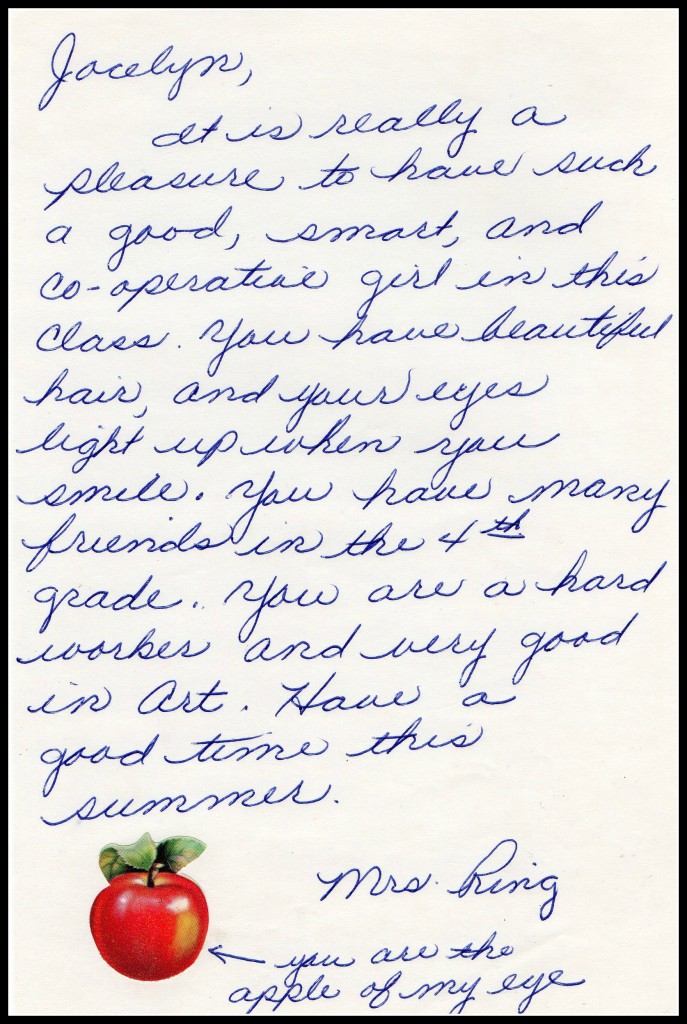 Jocelyn,
It is really a
pleasure to have such
a good, smart, and
co-operative girl in this
class. You have beautiful
hair, and your eyes
light up when you
smile. You have many
friends in the 4th
grade. You are a hard
worker and very good
in Art. Have a
good time this
summer.
Mrs. Ring
you are the
apple of my eye